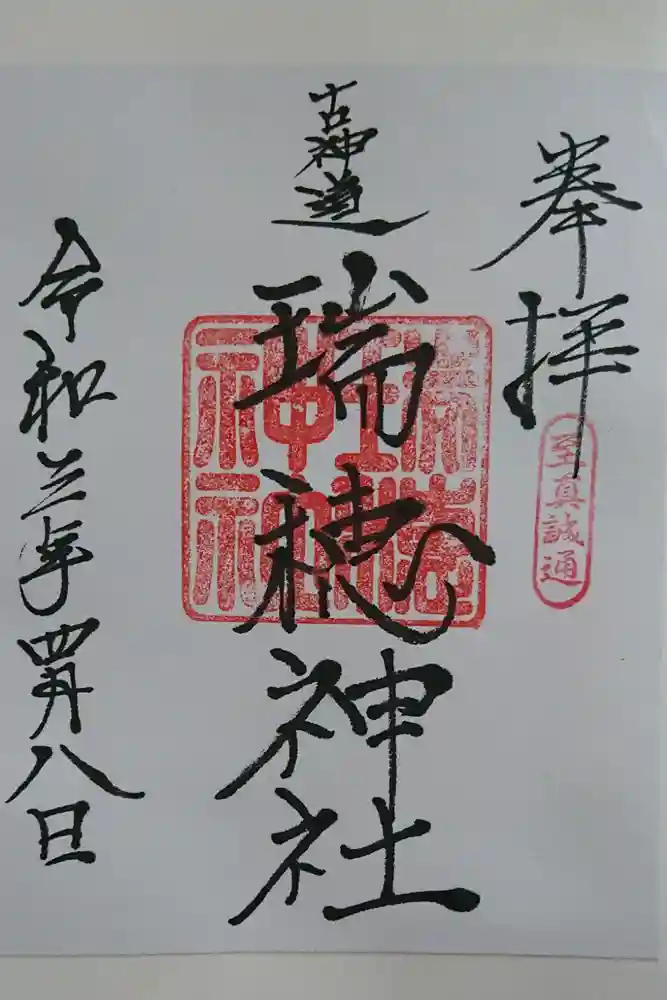 奉拝
至真誠通
古神道
瑞穂神社
瑞穂神社
令和三年四月八日